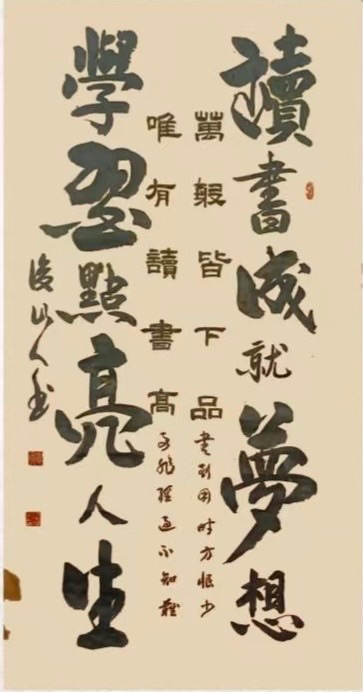 讀書成就夢想
萬般皆下品
書到用時方恨少
唯有讀書高
事非經過不知難
學習點亮人生